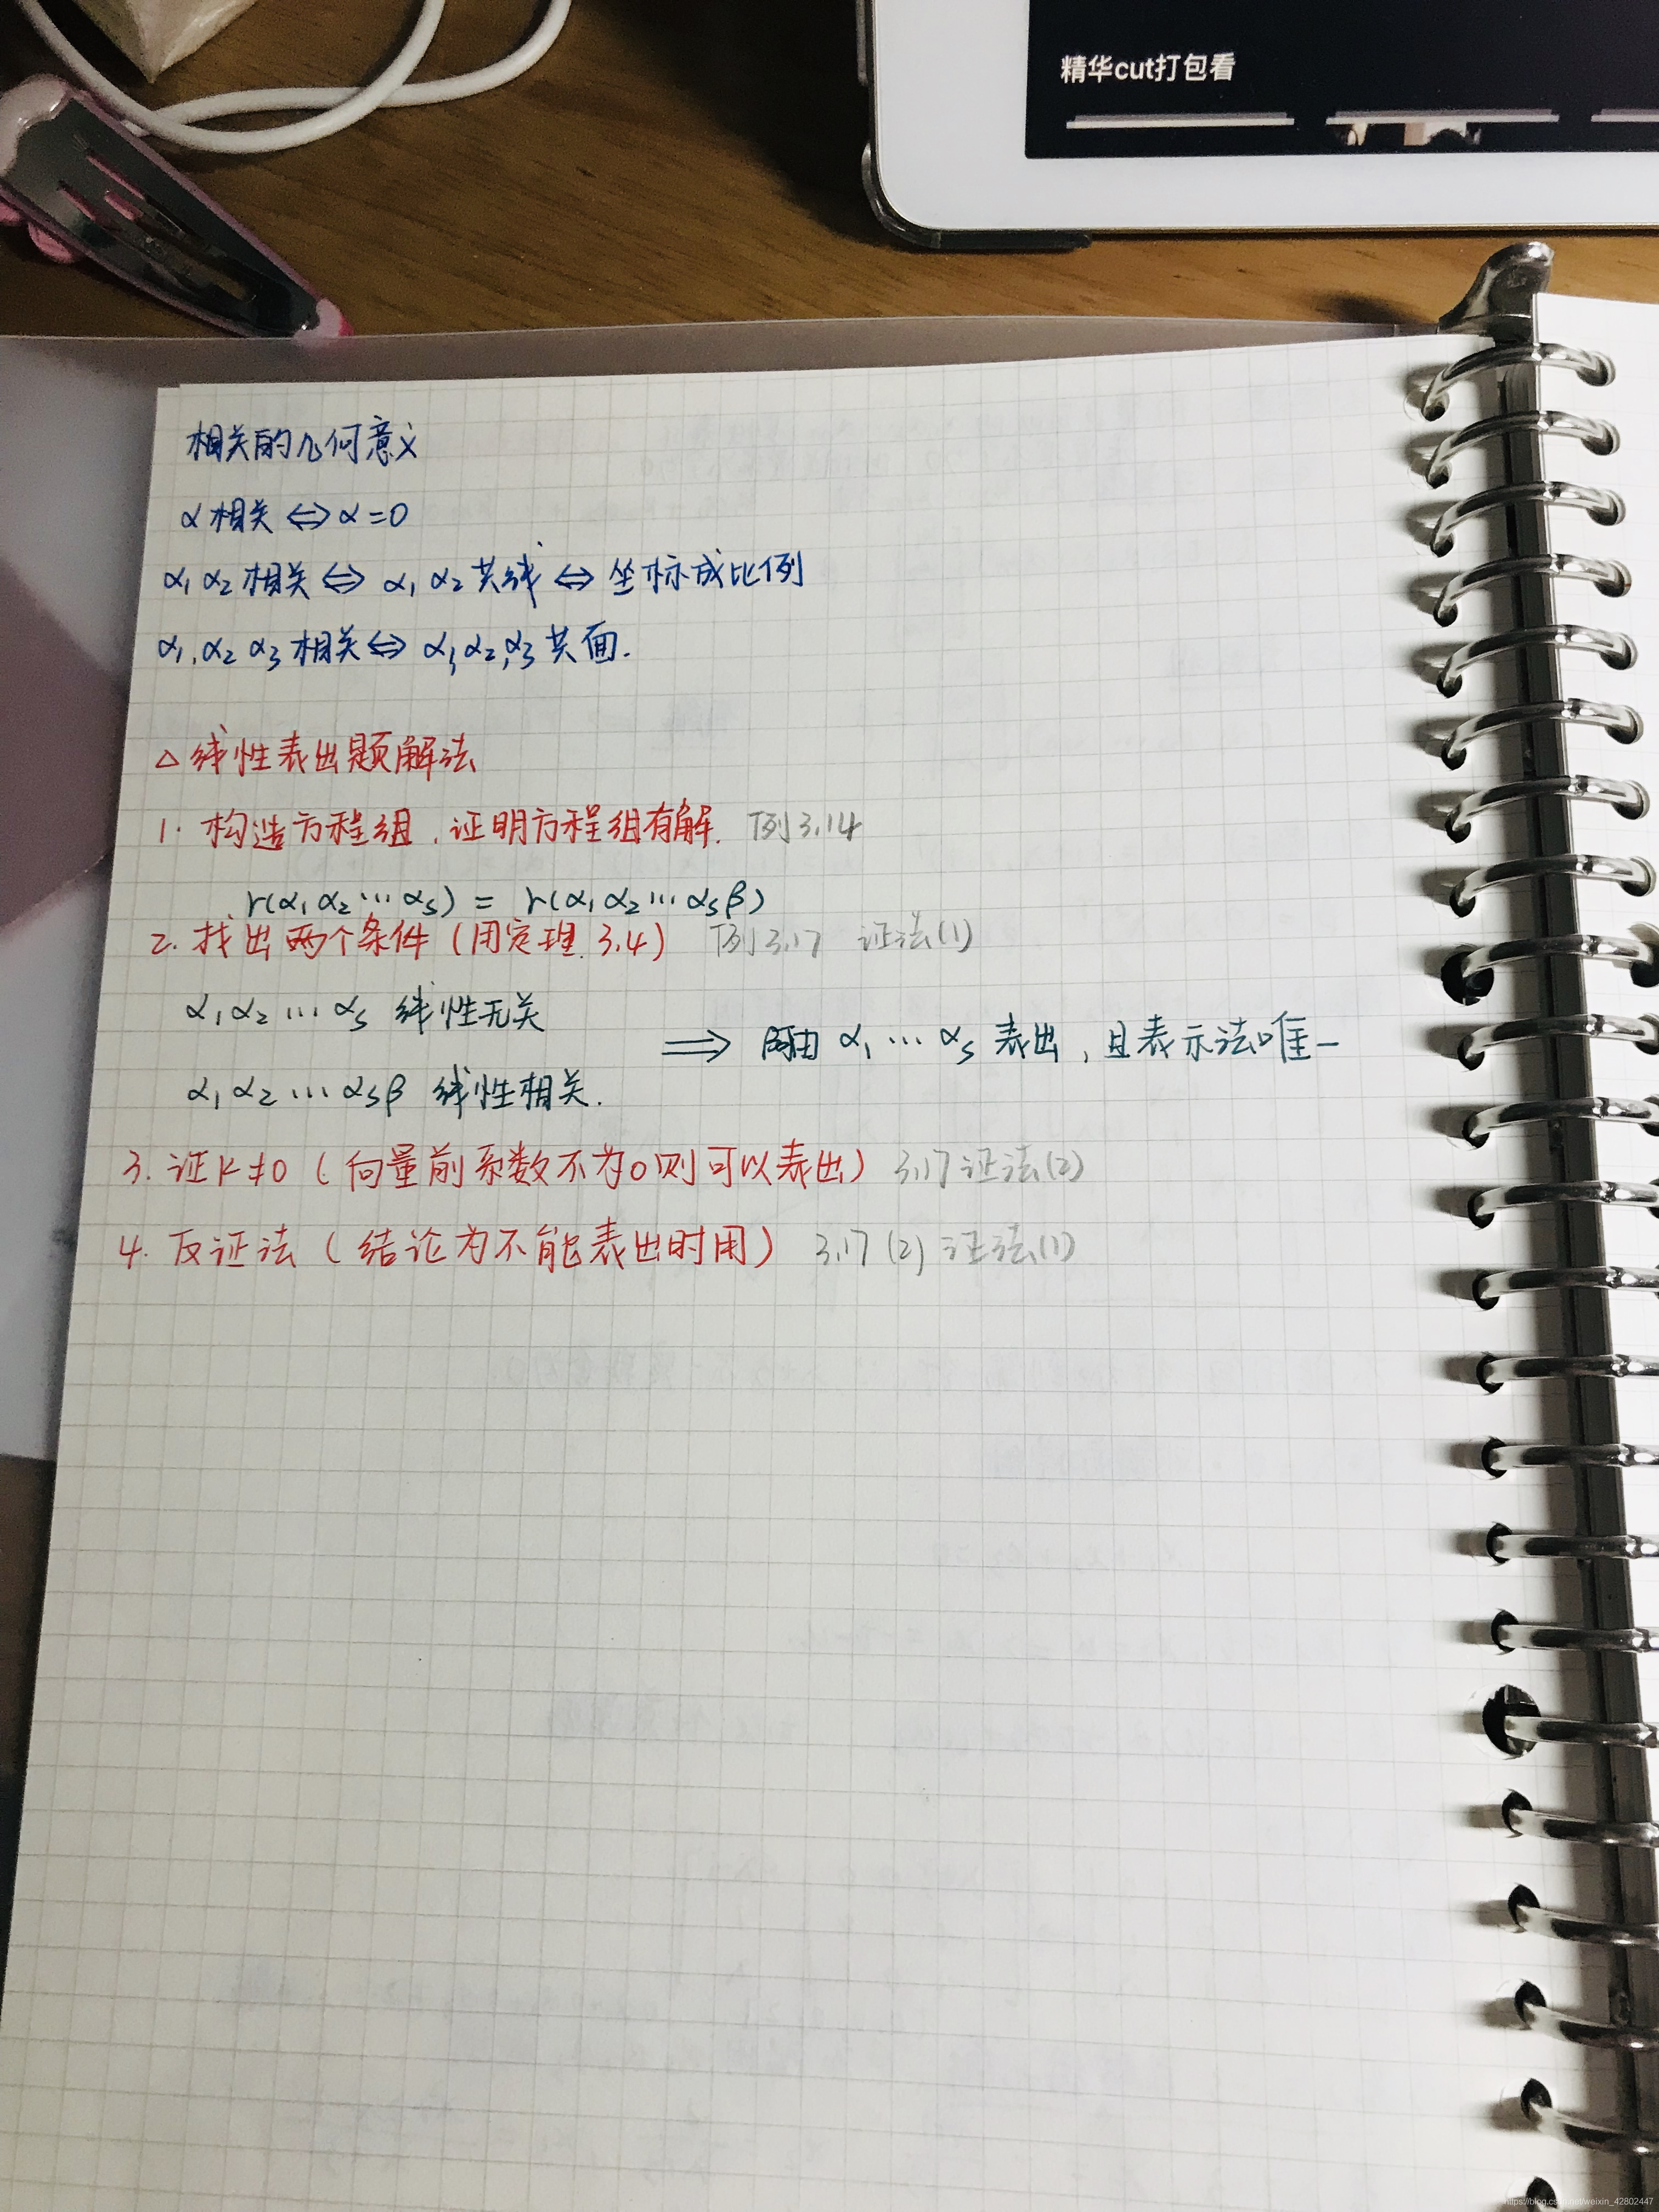 精华cut打包看
相关的几何意义
α相关⇔α=0
α₁α₂相关⇔α₁α₂共线⇔坐标成比例
α₁,α₂ α₃相关⇔α₁,α₂,α₃共面.
△线性表出题解法
1. 构造方程组,证明方程组有解. 例3.14
r(α₁α₂…αs) = r(α₁α₂…αsβ)
2. 找出两个条件(用定理3.4) 例3.17 证法(1)
α₁α₂…αs 线性无关
⟹ 由 α₁…αs 表出,且表示法唯一
α₁α₂…αsβ 线性相关.
3. 证k≠0(向量前系数不为0则可以表出) 3.17证法(2)
4. 反证法(结论为不能表出时用) 3.17(2)证法(1)
https://blog.csdn.net/weixin_42802447